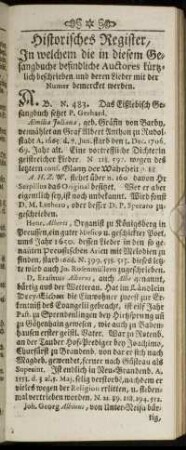 Historisches Register,
In welchem die in diesem Ge-
sangbuche befindliche Auctores kürtz-
lich beschrieben und deren Lieder mit der
Numer bemercket werden.
A. B. N. 483. Das Eißlebisch Ge-
sangbuch setzt P. Gerhard.
Juliana, geb. Gräfin von Barby,
vermählet an Graf Albert Anthon zu Rudol-
stadt A. 1665. d. 7. Jun. starb den 1. Dec. 1706.
Jahr alt. Eine vortreffliche Dichterin
geistreicher Lieder. N. 218. 597. wegen des
letztern conf. Glantz der Wahrheit p.
A. H. Z. W. stehet über n. 160 davon Hr
Serpilius das Original besitzet. Wer er aber
eigentlich sey, ist noch unbekannt. Wird sonst
D. M. Luthero, aber besser D. P. Sperato zu-
geschrieben.
Henr. Albertus, Organist zu Königsberg
in Preussen, ein guter Musicus u. geschickter Poet,
ums Jahr 1640. dessen Lieder in den so ge-
nannten Preussischen Arien mit Melodien zu
finden, starb 1668. N. 399. 518. 515. dieses letz-
tere wird auch Jo. Rosenmüllern zugeschrieben.
D. Erasmus Alberus, auch Albe genannt,
bürtig aus der Wetterau. Hat im Ländlein
Drey-Eichen die Einwohner zuerst zur Er-
käntniß des Evangelii gebracht, ist eilf Jahr
Past. zu Sprendenlingen bey Hirtzsprung
zu Götzenhain gewesen, wie auch zu Baben-
hausen der erste geistl. Vater. War zu Rotenb.
an der Tauber Hof-Prediger bey Joachimo,
Churfürst zu Brandenb. von dar er sich nach
Magdeb. gewendet, ferner nach Stargard als
Supeint. Ist endlich in Neu-Brandenb. A.
1553. d. 5 Maj. selig verstorben, nachdem er
vieles wegen der Religion erlitten, u. siebent-
mal vertrieben worden. N. 22. 89. 218. 294. 552.
Joh. Georg Albinus, von Unter-Neiza bür-
tig,